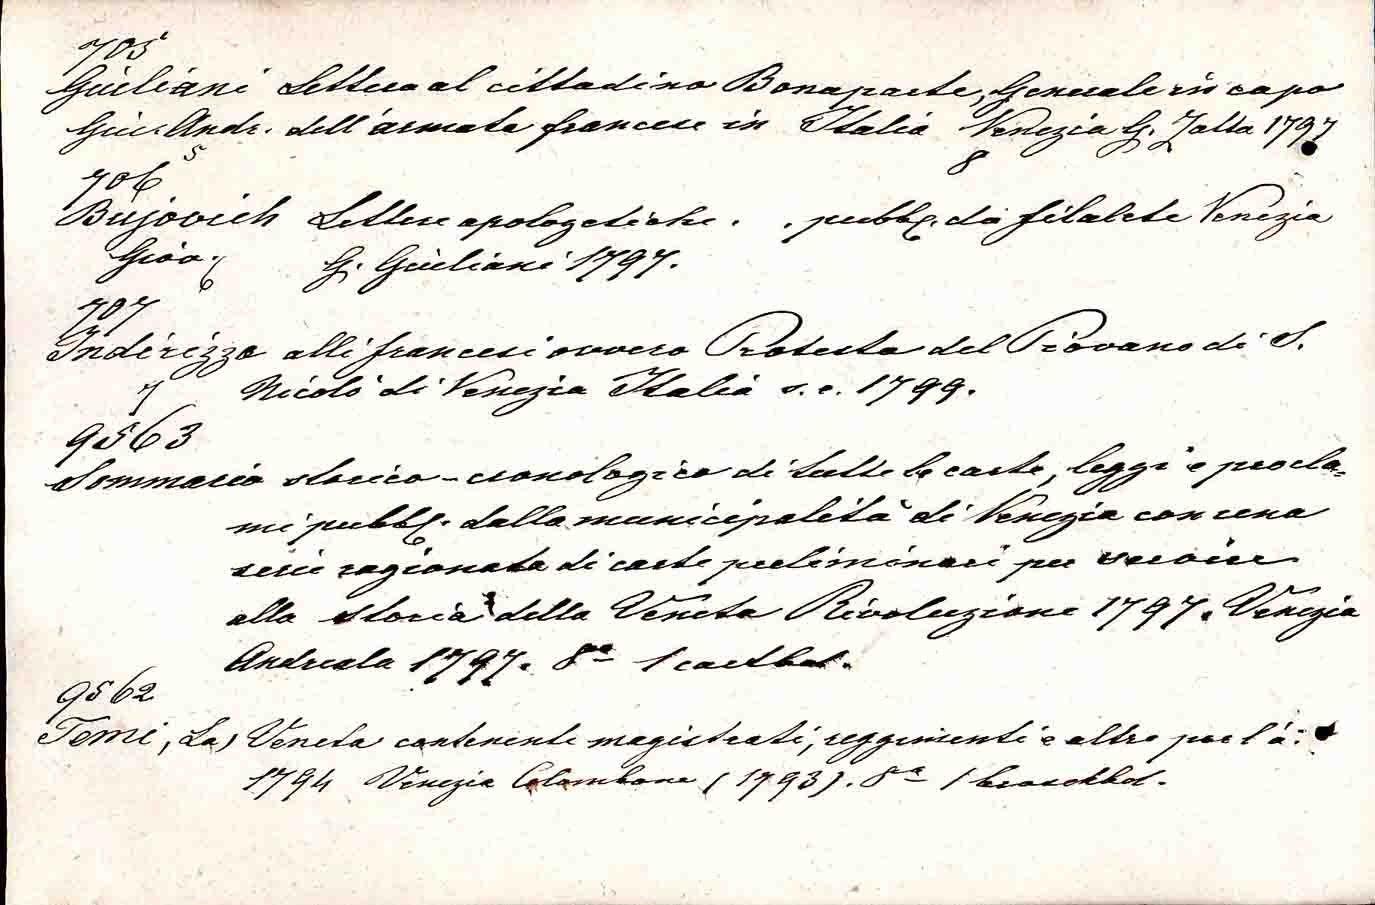 705
Giuliani Lettera al cittadino Bonaparte, Generale in capo
Giu. Andr. dell'armata francese in Italia Venezia G. Zatta 1797
5 8
706
Bujovich Lettere apologetiche . . pubbl. da filalete Venezia
Giov. G. Giuliani 1797.
6
707
Indirizzo alli francesi ovvero Protesta del Piovano di S.
7 Nicolò di Venezia Italia s. e. 1799.
9563
Sommario storico-cronologico di tutte le carte, leggi e procla-
mi pubbl. dalla municipalità di Venezia con una
serie ragionata di carte preliminari per servire
alla storia della Veneta Rivoluzione 1797. Venezia
Andreola 1797. 8° 1 cartbd.
9562
Temi, La, Veneta contenente magistrati, reggimenti e altro per l'a:
1794 Venezia Colombone (1793). 8° 1 broschbd.